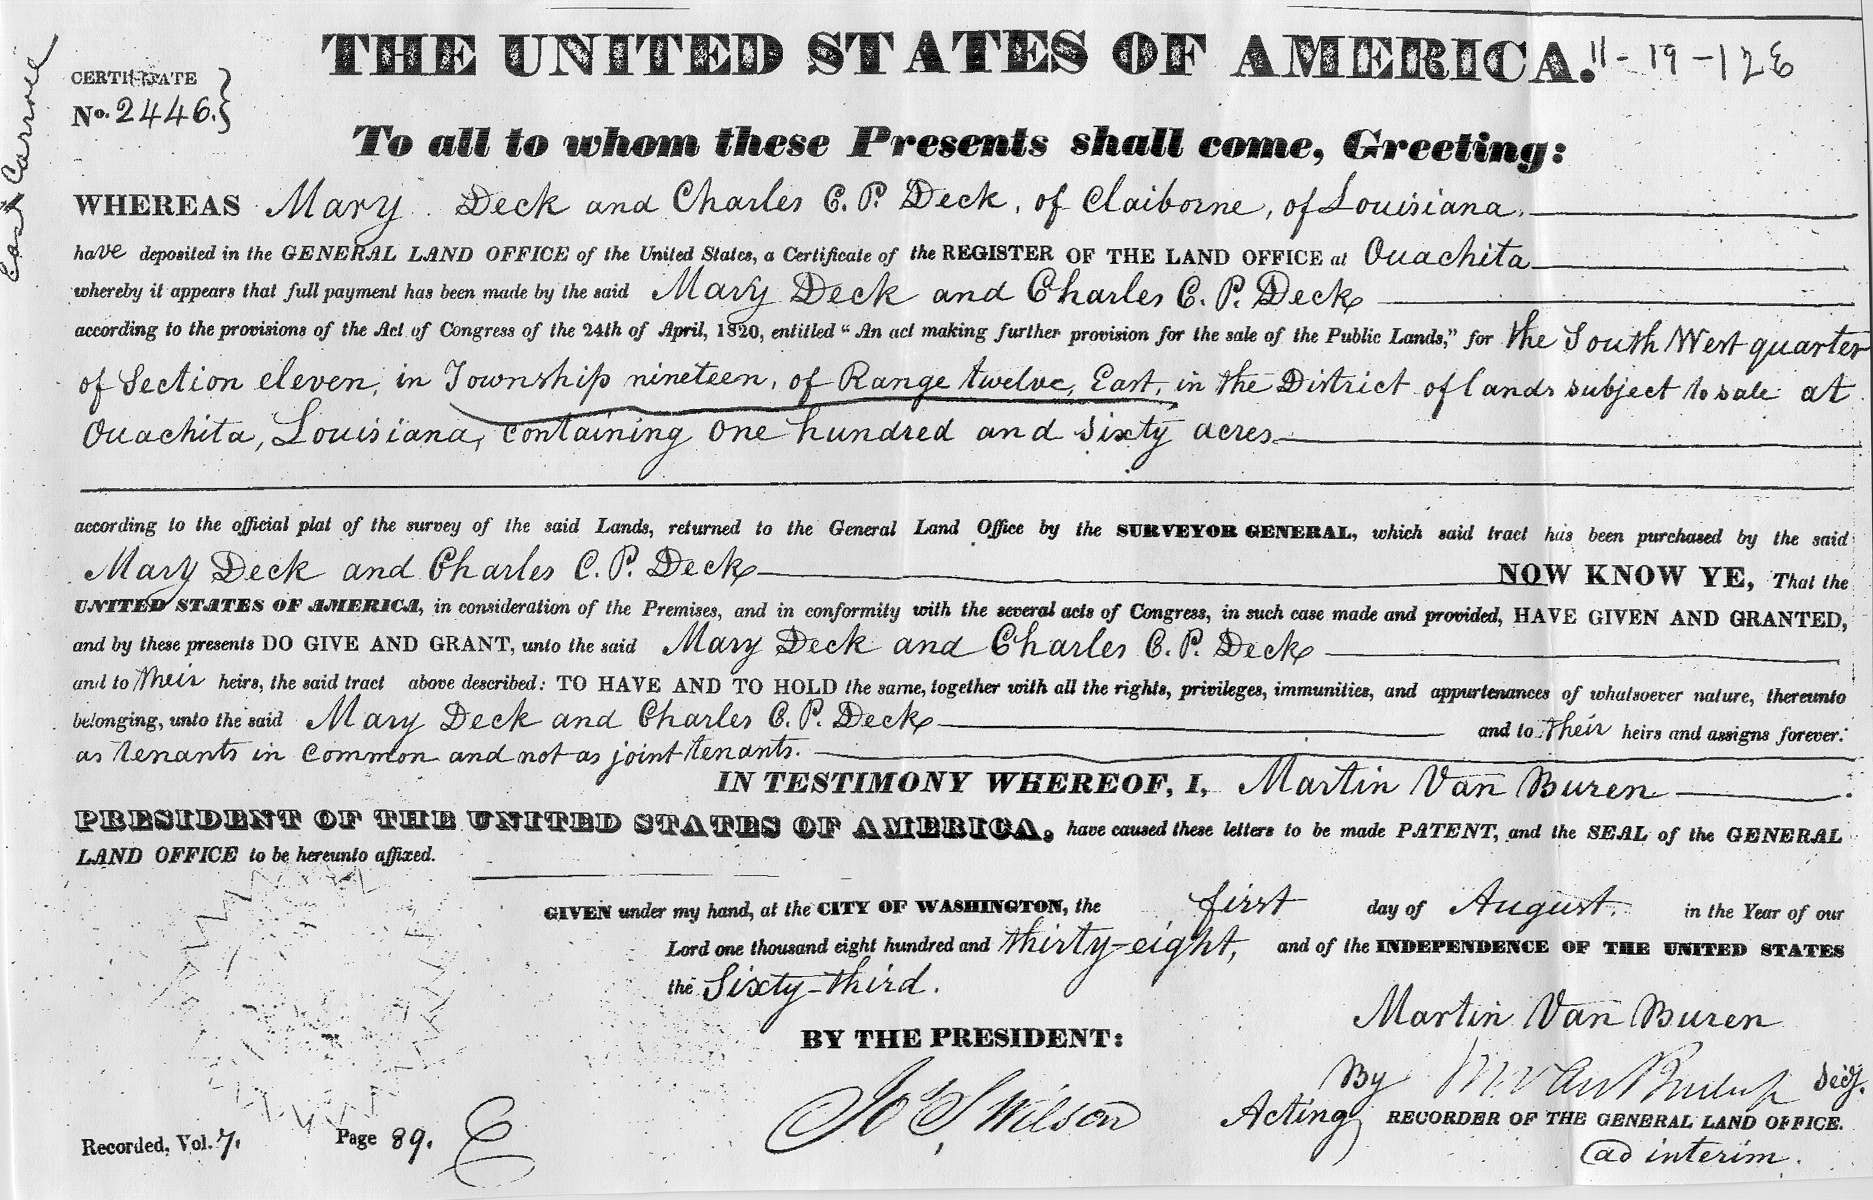 THE UNITED STATES OF AMERICA.
11-19-12E
CERTIFICATE
No. 2446.
East Carroll
To all to whom these Presents shall come, Greeting:
WHEREAS Mary Deck and Charles C. P. Deck, of Claiborne, of Louisiana,
have deposited in the GENERAL LAND OFFICE of the United States, a Certificate of the REGISTER OF THE LAND OFFICE at Ouachita
whereby it appears that full payment has been made by the said Mary Deck and Charles C. P. Deck
according to the provisions of the Act of Congress of the 24th of April, 1820, entitled "An act making further provision for the sale of the Public Lands," for the South West quarter
of Section eleven, in Township nineteen, of Range twelve, East, in the District of lands subject to sale at
Ouachita, Louisiana, containing one hundred and sixty acres
according to the official plat of the survey of the said Lands, returned to the General Land Office by the SURVEYOR GENERAL, which said tract has been purchased by the said
Mary Deck and Charles C. P. Deck NOW KNOW YE, That the
UNITED STATES OF AMERICA, in consideration of the Premises, and in conformity with the several acts of Congress, in such case made and provided, HAVE GIVEN AND GRANTED,
and by these presents DO GIVE AND GRANT, unto the said Mary Deck and Charles C. P. Deck
and to their heirs, the said tract above described: TO HAVE AND TO HOLD the same, together with all the rights, privileges, immunities, and appurtenances of whatsoever nature, thereunto
belonging, unto the said Mary Deck and Charles C. P. Deck and to their heirs and assigns forever.
as tenants in common and not as joint tenants.
IN TESTIMONY WHEREOF, I, Martin Van Buren
PRESIDENT OF THE UNITED STATES OF AMERICA, have caused these letters to be made PATENT, and the SEAL of the GENERAL
LAND OFFICE to be hereunto affixed.
GIVEN under my hand, at the CITY OF WASHINGTON, the first day of August. in the Year of our
Lord one thousand eight hundred and thirty-eight, and of the INDEPENDENCE OF THE UNITED STATES
the Sixty-third.
BY THE PRESIDENT: Martin Van Buren
By M. Van Buren Jr Secy.
Jos S Wilson Acting RECORDER OF THE GENERAL LAND OFFICE.
ad interim.
Recorded, Vol. 7. Page 89. E